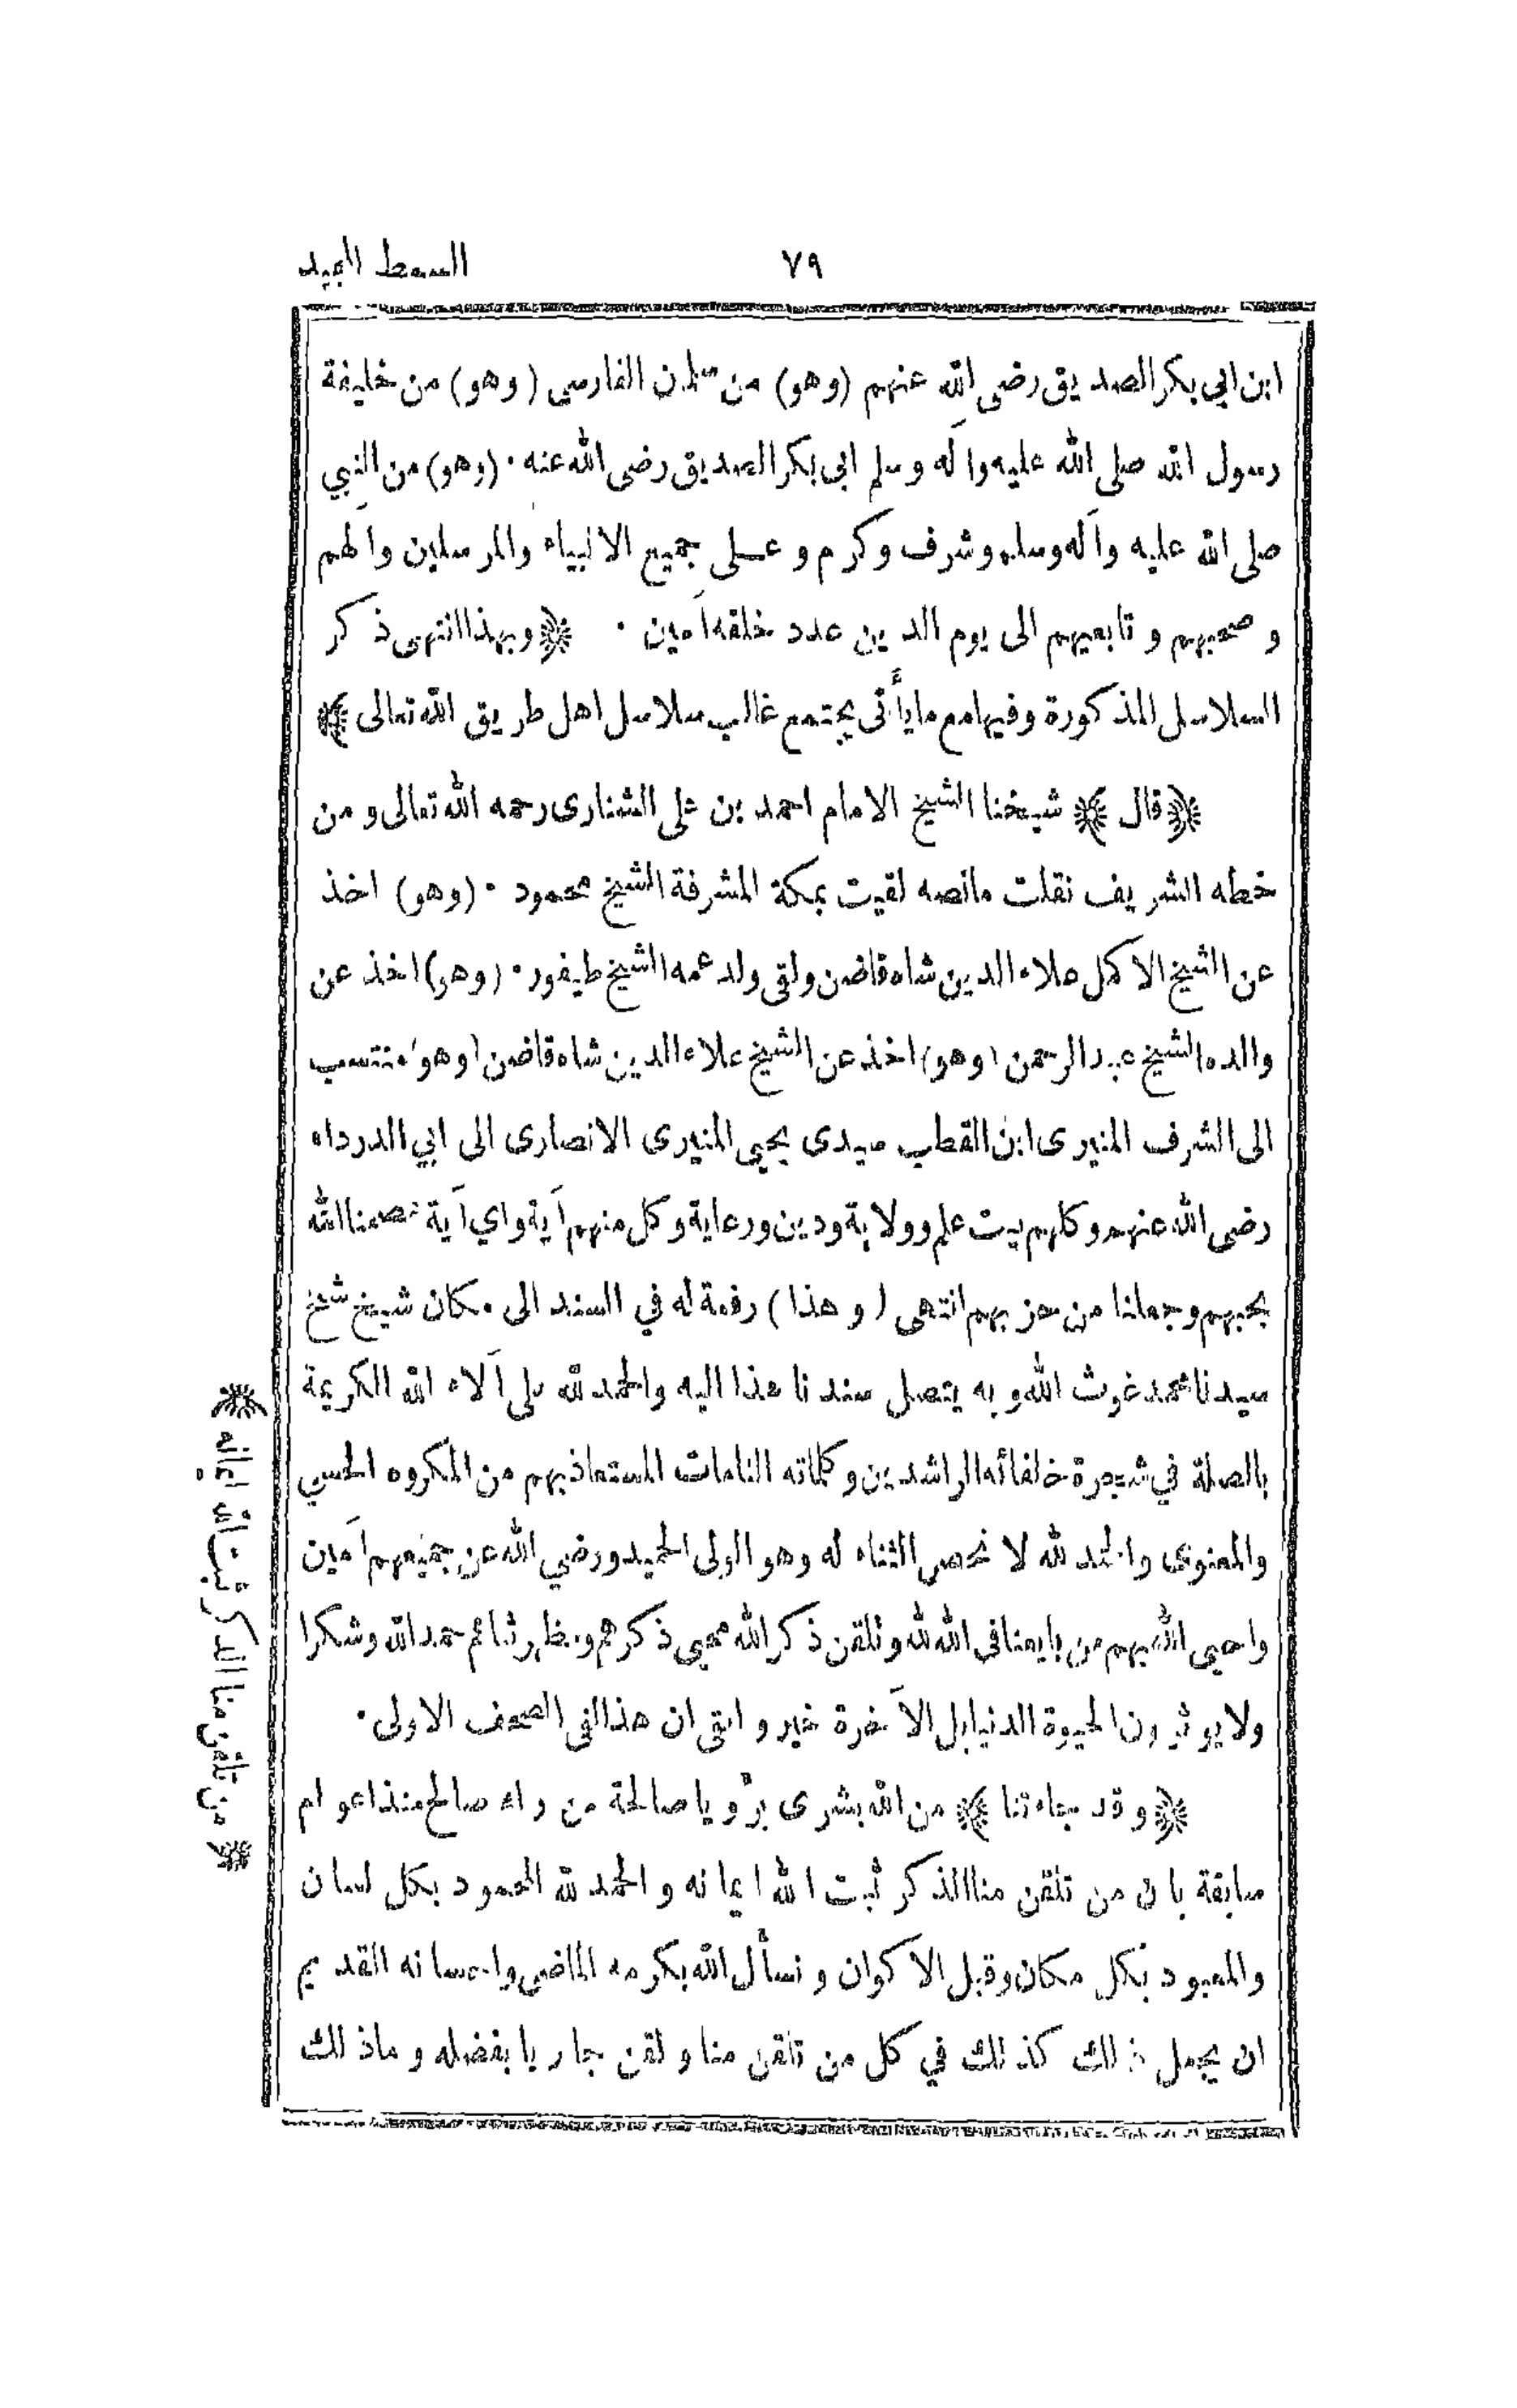 السمط المجيد
٧٩
ابن ابي بكر الصديق رضى الله عنهم (وهو) من سلمان الفارسى (وهو) من خليفة
رسول الله صلى الله عليه وآله وسلم ابى بكر الصديق رضى الله عنه ٠ (وهو) من النبي
صلى الله عليه وآله وسلم وشرف وكرم وعلى جميع الانبياء والمرسلين وآلهم
وصحبهم وتابعيهم الى يوم الدين عدد خلقه آمين ٠ ﴿ وبهذا انتهى ذكر
السلاسل المذكورة وفيها مع ما يأتى يجتمع غالب سلاسل اهل طريق الله تعالى ﴾
﴿ قال ﴾ شيخنا الشيخ الامام احمد بن على الشناوى رحمه الله تعالى ومن
خطه الشريف نقلت مانصه لقيت بمكة المشرفة الشيخ محمود ٠ (وهو) اخذ
عن الشيخ الاكمل علاء الدين شاه قاضن ولقى ولد عمه الشيخ طيفور ٠ (وهو) اخذ عن
والده الشيخ عبد الرحمن (وهو) اخذ عن الشيخ علاء الدين شاه قاضن (وهو) منتسب
الى الشرف المنيرى ابن القطب سيدى يحيى المنيرى الانصارى الى ابي الدرداء
رضى الله عنهم وكلهم بيت علم وولاية ودين ورعاية وكل منهم آية واي آية الله
بحبهم وجعلنا من حزبهم انتهى (وهذا) رفعة له في السند الى مكان شيخ شيخ
سيدنا محمد غوث الله وبه يتصل سندنا هذا اليه والحمد لله على آلاء الله الكريمة
بالصلة في شجرة خلفائه الراشدين وكلماته التامات المستعاذ بهم من المكروه الحسي
والمعنوى والحمد لله لا نحصى الثناء له وهو الولى الحميد ورضي الله عن جميعهم آمين
واحيى الله بهم من بايعنا فى الله لله وتلقن ذكر الله محيى ذكرهم حمد الله وشكرا
ولا يوثرون الحيوة الدنيا بل الآخرة خير وابقى ان هذا لفى الصحف الاولى ٠
﴿ وقد جاءتنا ﴾ من الله بشرى برؤيا صالحة من راء صالح منذ اعوام
سابقة بان من تلقن منا الذكر ثبت الله ايمانه والحمد لله المحمود بكل لسان
والمعبود بكل مكان وقبل الاكوان ونسأل الله بكرمه الماضى واحسانه القديم
ان يجعل ذلك كذلك في كل من تلقن منا ولقن جاريا بفضله وماذلك
﴿ من تلقن منا الذكر ثبت الله ايمانه ﴾